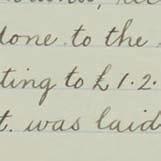 done to the
ting to £1.2.
t. was laid